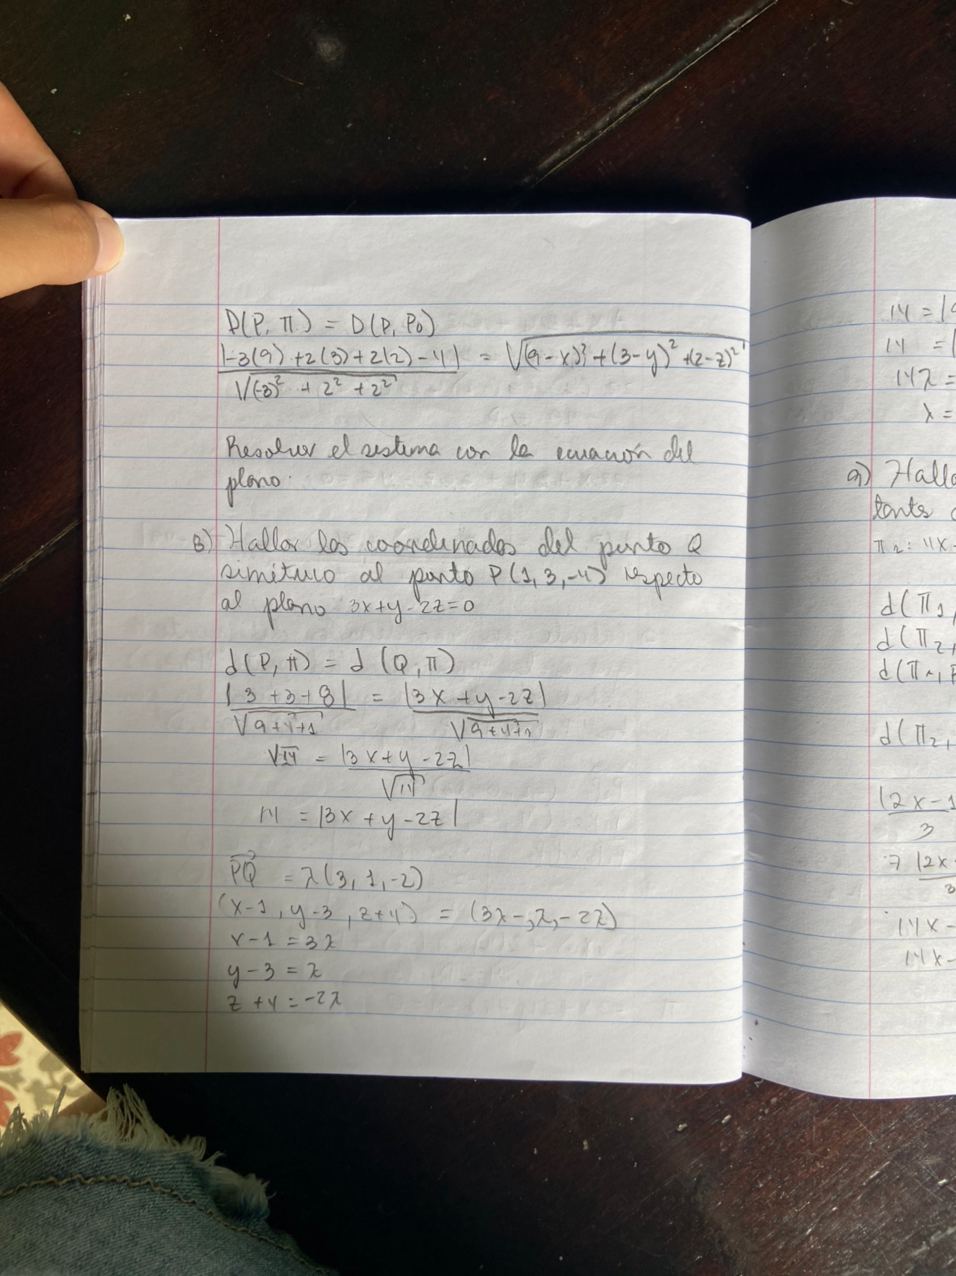 D(P, π) = D(P, P₀)
|-3(9) + 2(3) + 2(2) - 4| / √(-3)² + 2² + 2² = √(9-x)² + (3-y)² + (2-z)²
Resolver el sistema con la ecuación del
plano.
8) Hallar las coordenadas del punto Q
simétrico al punto P(1, 3, -4) respecto
al plano 3x+y-2z=0
d(P, π) = d(Q, π)
|3+3+8| / √9+4+1 = |3x+y-2z| / √9+4+1
√14 = |3x+y-2z| / √14
14 = |3x+y-2z|
PQ⃗ = λ(3, 1, -2)
(x-1, y-3, z+4) = (3λ-, λ, -2λ)
x-1 = 3λ
y-3 = λ
z+4 = -2λ
14 = |
14 = |
14λ =
λ =
9) Halla
tants
π₂: 4x-
d(π₁,
d(π₂,
d(π₁, P
d(π₂,
|2x-1 / 3
7|2x
14x-
14x-